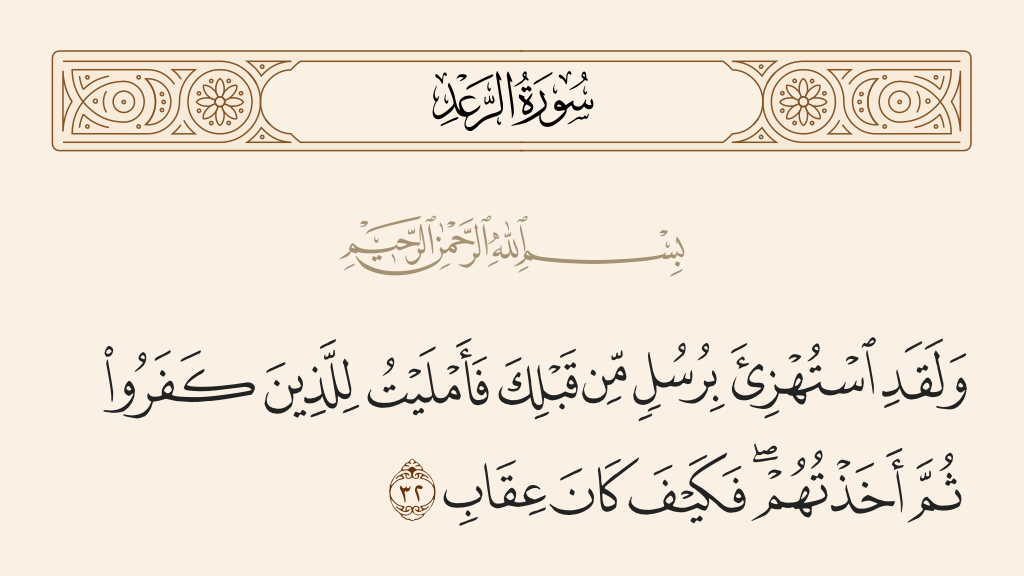 سُورَةُ الرَّعْدِ
بِسْمِ ٱللَّهِ ٱلرَّحْمَٰنِ ٱلرَّحِيمِ
وَلَقَدِ ٱسْتُهْزِئَ بِرُسُلٍ مِّن قَبْلِكَ فَأَمْلَيْتُ لِلَّذِينَ كَفَرُوا۟
ثُمَّ أَخَذْتُهُمْ ۖ فَكَيْفَ كَانَ عِقَابِ ٣٢